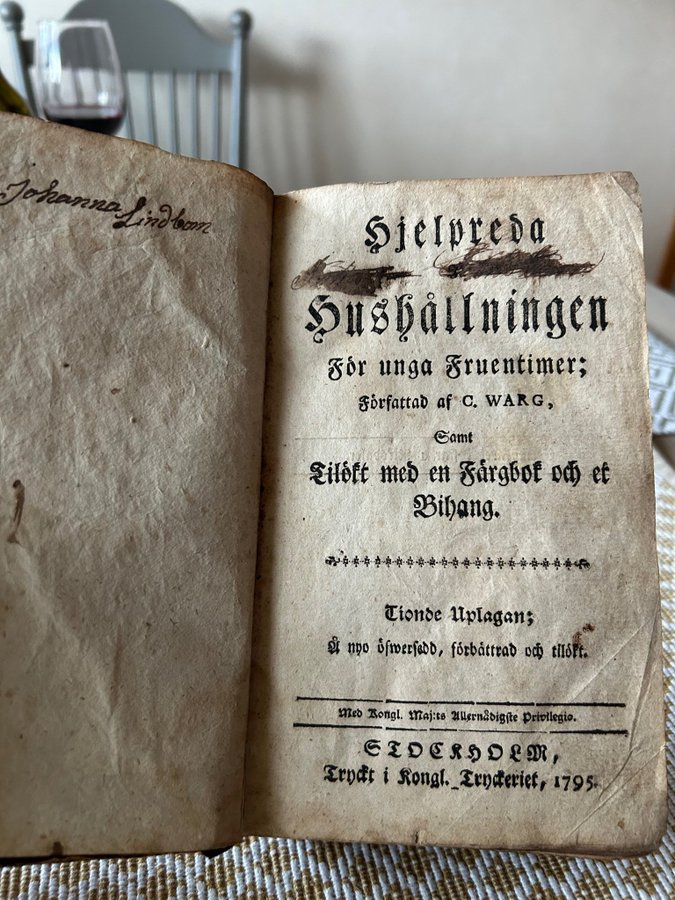 Johanna
Lindbom
Hjelpreda
Hushållningen
För unga Fruentimer;
Författad af C. WARG,
Samt
Tilökt med en Färgbok och et
Bihang.
Tionde Uplagan;
Å nyo öfwersedd, förbättrad och tilökt.
Med Kongl. Maj:ts Allernådigste Privilegio.
STOCKHOLM,
Tryckt i Kongl. Tryckeriet, 1795.